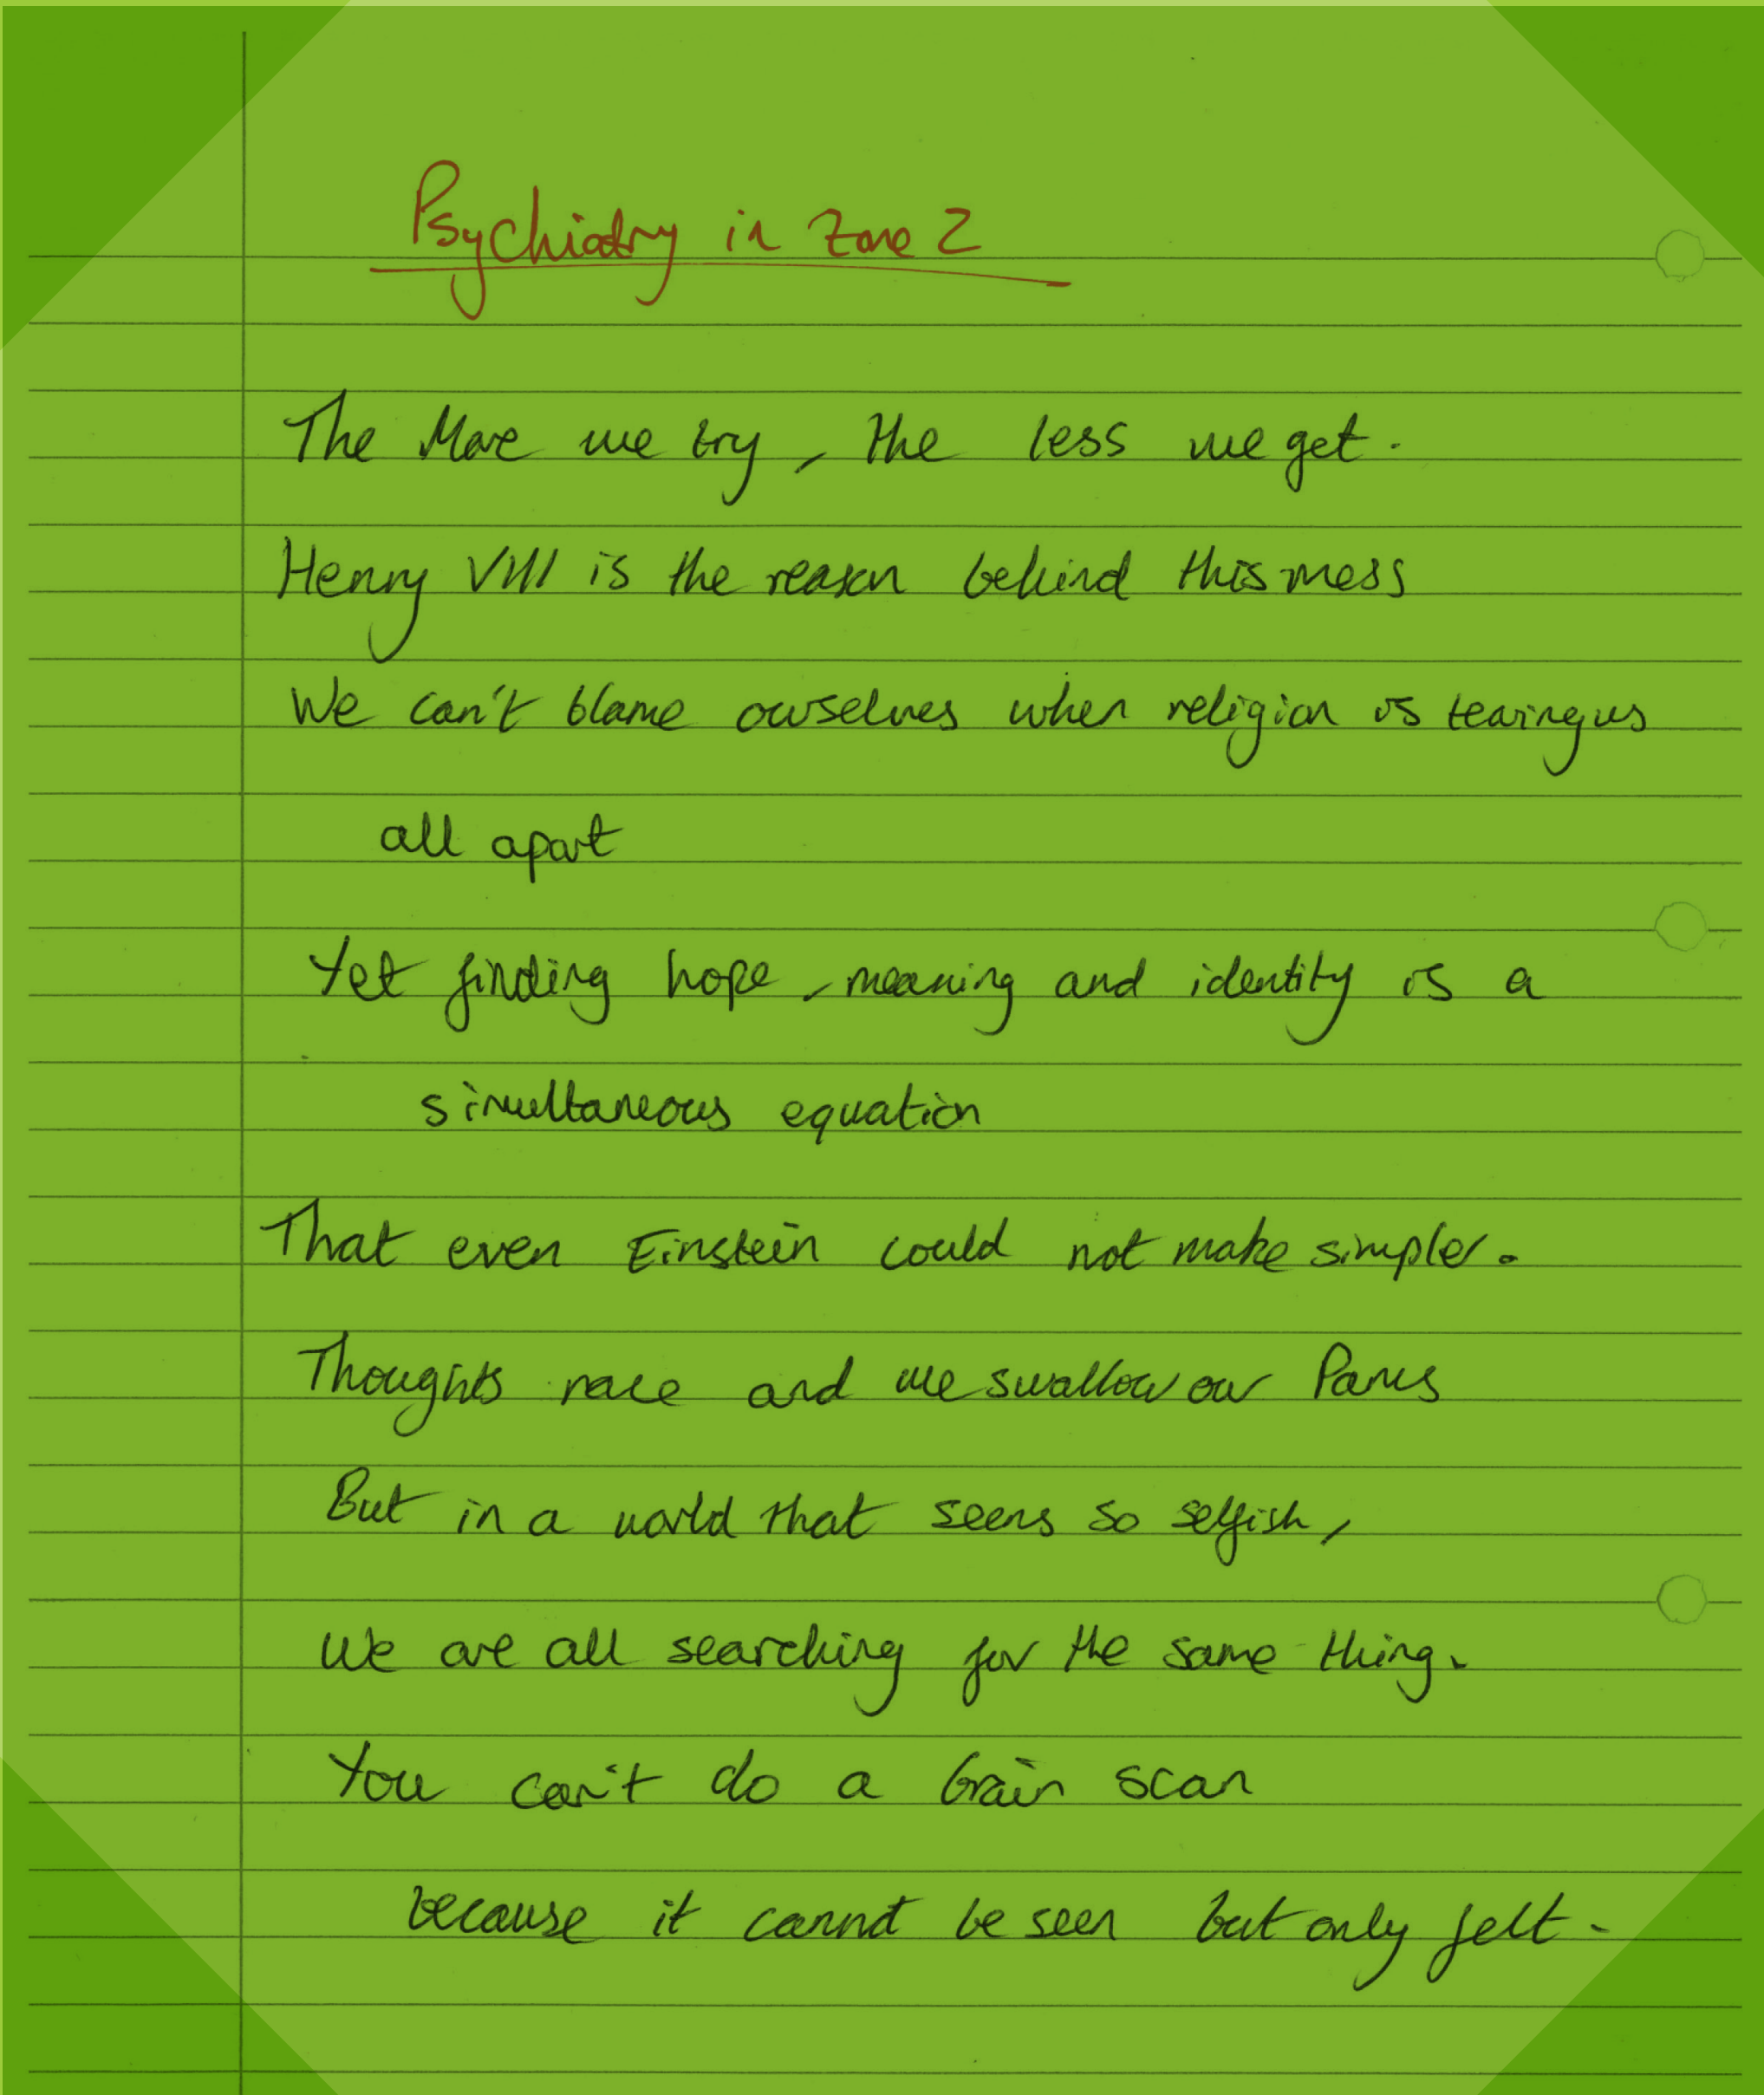 Psychiatry in Zone 2
The More we try, the less we get.
Henry VIII is the reason behind this mess
We can't blame ourselves when religion is tearing us
all apart
Yet finding hope, meaning and identity is a
simultaneous equation
That even Einstein could not make simpler.
Thoughts race and we swallow our
But in a world that seems so selfish,
We are all searching for the same thing.
You can't do a brain scan
because it cannot be seen but only felt.